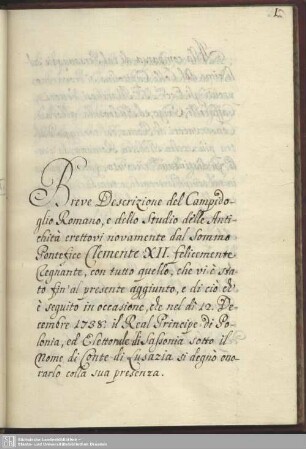 1.
Breve Descrizione del Campido-
glio Romano, e dello Studio delle Anti-
chità erettovi novamente dal Sommo
Pontefice Clemente XII. felicemente
Regnante, con tutto quello, che vi è sta-
to fin'al presente aggiunto, e di ciò ch'
è seguito in occasione, che nel dì 12. De-
cembre 1738: il Real Principe di Po-
lonia, ed Elettorale di Sassonia sotto il
Nome di Conte di Lusazia si degnò ono-
rarlo colla sua presenza.